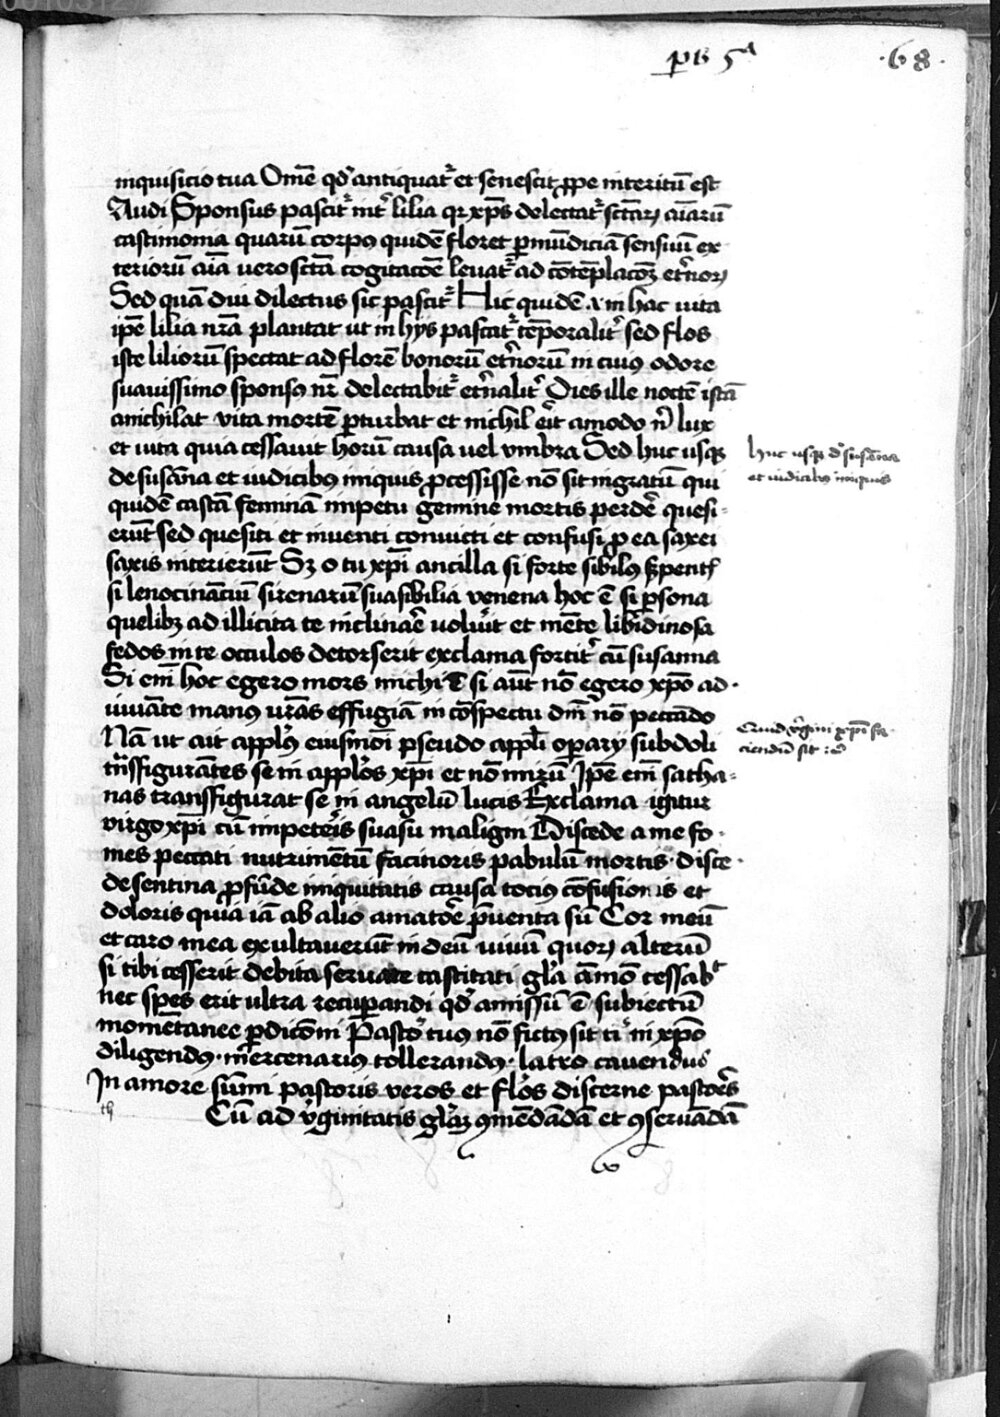 ps 5ᵃ
·68·
inquisicio tua Om̄e qd̓ antiquat᷑ et senescit ꝓpe interitū est
Audi Sponsus pascit᷑ int̓ lilia qr xp̄s delectat᷑ sc̄taꝝ aīarū
castimonia quarū corpꝯ quidē floret ꝑ mūdiciā sensiuū ex
teriorū aīa uero sc̄ta cogitacōe leuat᷑ ad cōtēplacōꝫ et̓noꝝ
Sed quā diu dilectus sic pascit᷑ Hic quidē ⁊ in hac uita
ip̄e lilia nr̄a plantat ut in hys pascat᷑ tēporalit̓ sed flos
iste liliorū spectat ad florē bonorū et̓norū in cuiꝯ odore
suauissimo sponsꝯ nr̄ delectabit᷑ et̓nalit̓ Dies ille noctē istā
anichilat vita mortē ꝑturbat et nichil erit amodo n̓ lux
et uita quia cessauit horū causa uel vmbra Sed huc usqꝫ
de susāna et iudicibꝯ iniquis ꝓcessisse nō sit ingratū qui
quidē castā feminā impetu gemine mortis perder̄ quesi
erūt sed quesiti et inuenti conuicti et confusi ꝓ ea saxei
saxis interierūt Sꝫ o tu xp̄i ancilla si forte sibilꝯ s̓pentꝭ
si lenocinātiū sirenarū suasibilia venena hoc ē si ꝑsona
quelibꝫ ad illicita te inclinar̄ uolu̓it et mēte libidinosa
fedos in te occulos detorserit exclama fortit̓ cū susanna
Si em̄ hoc egero mors michi ē si aūt nō egero xp̄o ad
iuuāte manus ur̄as effugiā in cōspectu dn̄i nō peccādo
Nā ut ait appl̓s eiusmōi pseudo appl̓i operary subdoli
tn̄sfigurātes se in appl̓os xp̄i et nō mirū Ip̄e em̄ satha
nas transfigurat se in angelū lucis Exclama igitur
virgo xp̄i cū impeter̄is suasu maligni Discede a me fo
mes peccati nutrimētū facinoris pabulū mortis· disce
de sentina ꝓfūde iniquitatis causa tociꝯ cōfusionis et
doloris quia iā ab alio amator̄e p̄uenta sū Cor meū
et caro mea exultauerūt in deū uiuū quoꝝ alterū
si tibi cesserit debita seruate castitati gl̓a āmō cessabᵗ
nec spes erit ultra recuꝑandi qd̓ amissū ē subiectū
momētanee ꝑdicōni Pastor tuus nō fictꝯ sit ti᷑ in xp̄o
diligendꝯ· m̓cenarius tollerandꝯ· latro cauendus
In amore sūmi pastoris veros et fl̓os discerne pastor̄s
Cū ad v̓ginitatis gl̓aꝫ ꝯmēdādā et ꝯseruādā
huc usqꝫ d̓ susāna
et iudicibꝯ iniquis
Quid v̓gini xp̄i fa
ciendū sit